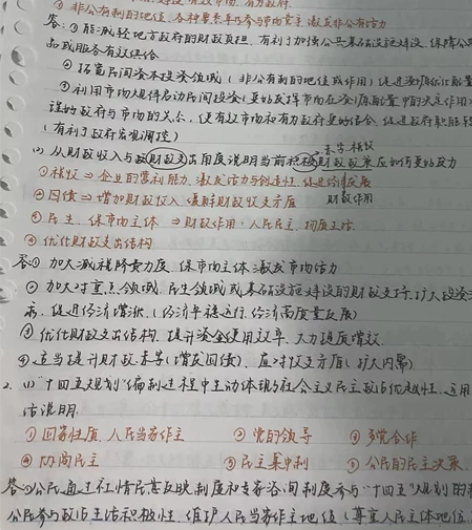 ③ 非公有制的地位,各种要素参与
答:① 能减轻地方政府的财政负担,有利于加强公共基础设施建设,保障公
品或服务有效供给
② 拓宽民间资本投资领域(非公有制的地位或作用)促进资源
③ 利用市场规律启动民间投资(更好发挥市场在资源配置中的决定作用
政府与市场的关系,使有效市场和有为政府更好结合,促进政府职能转
(有利于政府宏观调控)
(2) 从财政收入与财政支出角度说明当前积极财政政策应如何更好发力
赤字 减税
① 减税 ⇒ 企业的营利能力,激发活力与创造性,促进经济发展
② 国债 ⇒ 增加财政收入,缓解财政收支矛盾 财政作用
③ 民生、保市场主体 ⇒ 财政作用、人民民主
④ 优化财政支出结构
答① 加大减税降费力度,保市场主体激发市场活力
② 加大对重点领域、民生领域或基础设施建设的财政支持,扩大投资
促进经济增长(经济平稳运行,经济高质量发展)
③ 优化财政支出结构,提升资金使用效率,大力提质增效
④ 适当提升财政赤字(增发国债),应对收支矛盾(扩大内需)
2. (1) "十四五规划"编制过程中生动体现了社会主义民主政治优越性,运用
活说明.
① 国家性质,人民当家作主 ② 党的领导 ③ 多党合作
④ 协商民主 ⑤ 民主集中制 ⑥ 公民的民主决策
答①公民通过社情民意反映制度和专家咨询制度参与"十四五"规划的制
公民参与政治生活积极性,维护人民当家作主地位(尊重人民主体地位